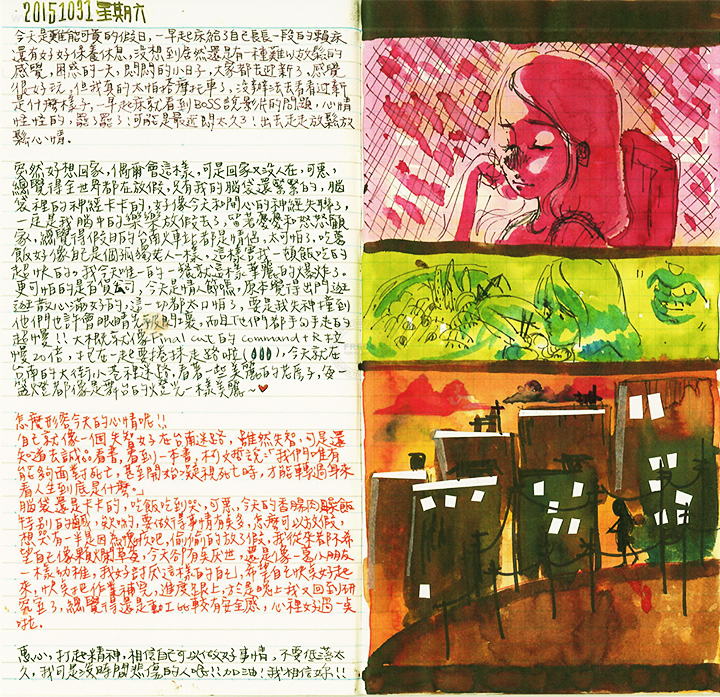 20151031 星期六
今天是難能可貴的假日,一早起床給了自己長長一段的賴床
還有好好保養休息,沒想到居然還是有一種難以放鬆的
感覺,困惑的一天,悶悶的小日子,大家都去迎新了,感覺
很好玩,但我真的太怕搭摩托車了,沒辦法去看看迎新
是什麼樣子,一早起床就看到BOSS說影片的問題,心情
怪怪的,罷了罷了!可能是最近悶太久了!出去走走放鬆放
鬆心情。
突然好想回家,偶爾會這樣,可是回家又沒人在,可惡,
總覺得全世界都在放假,只有我的腦袋還緊緊的,腦
袋裡的神經卡卡的,好像今天和開心的神經失聯了,
一定是我腦中的樂樂放假去了,留著憂憂和怒怒顧
家,總覺得假日的台南火車站都是情侶,太可怕了,吃著
飯好像自己是個孤獨老人一樣,這樣當我一頓飯吃的
超快的。我今天唯一的一餐就這樣華麗的大爆炸了。
更可怕的是百貨公司,今天是情人節嗎,原本覺得出門逛
逛散心滿好的,這一切都太白痴了,要是我失神撞到
他們也許會眼睛先
超慢!!大概就好像Final cut的command+R按
慢20倍,
台南的大街小巷裡迷路,看著一些美麗的花房子,每一
盞火燈都像是舞台的火燈光一樣美麗~♥
怎麼形容今天的心情呢!!
「自己就像一個失智女子在台南迷路,雖然失智,可是還
知道去誠品看書,看到一本書,柯文哲說:"我們唯有
能夠面對死亡,甚至開始凝視死亡時,才能轉過身來
看人生到底是什麼。」
腦袋還是卡卡的,吃飯吃到哭,可惡,今天的香腸肉燥飯
特別的鹹,欸幹的,要做得事情有臭多,怎麼可以放假,
想哭有一半是因為愧疚吧,偷偷的放了假,我從來都不希
望自己像累犯草莓,今天卻有臭厭世,還是像一齣小朋友
一樣幼稚,我好討厭這樣的自己,希望自己快點好起
來,快點把作業補完,進度跟上,於是晚上我又回到研
究室了,總覺得還是動工比較有安全感,心裡好過一點
啦。
惠心,打起精神,相信自己可以做好事情,不要低落太
久,我可是沒時間悲傷的人唷!!加油!我相信妳!!